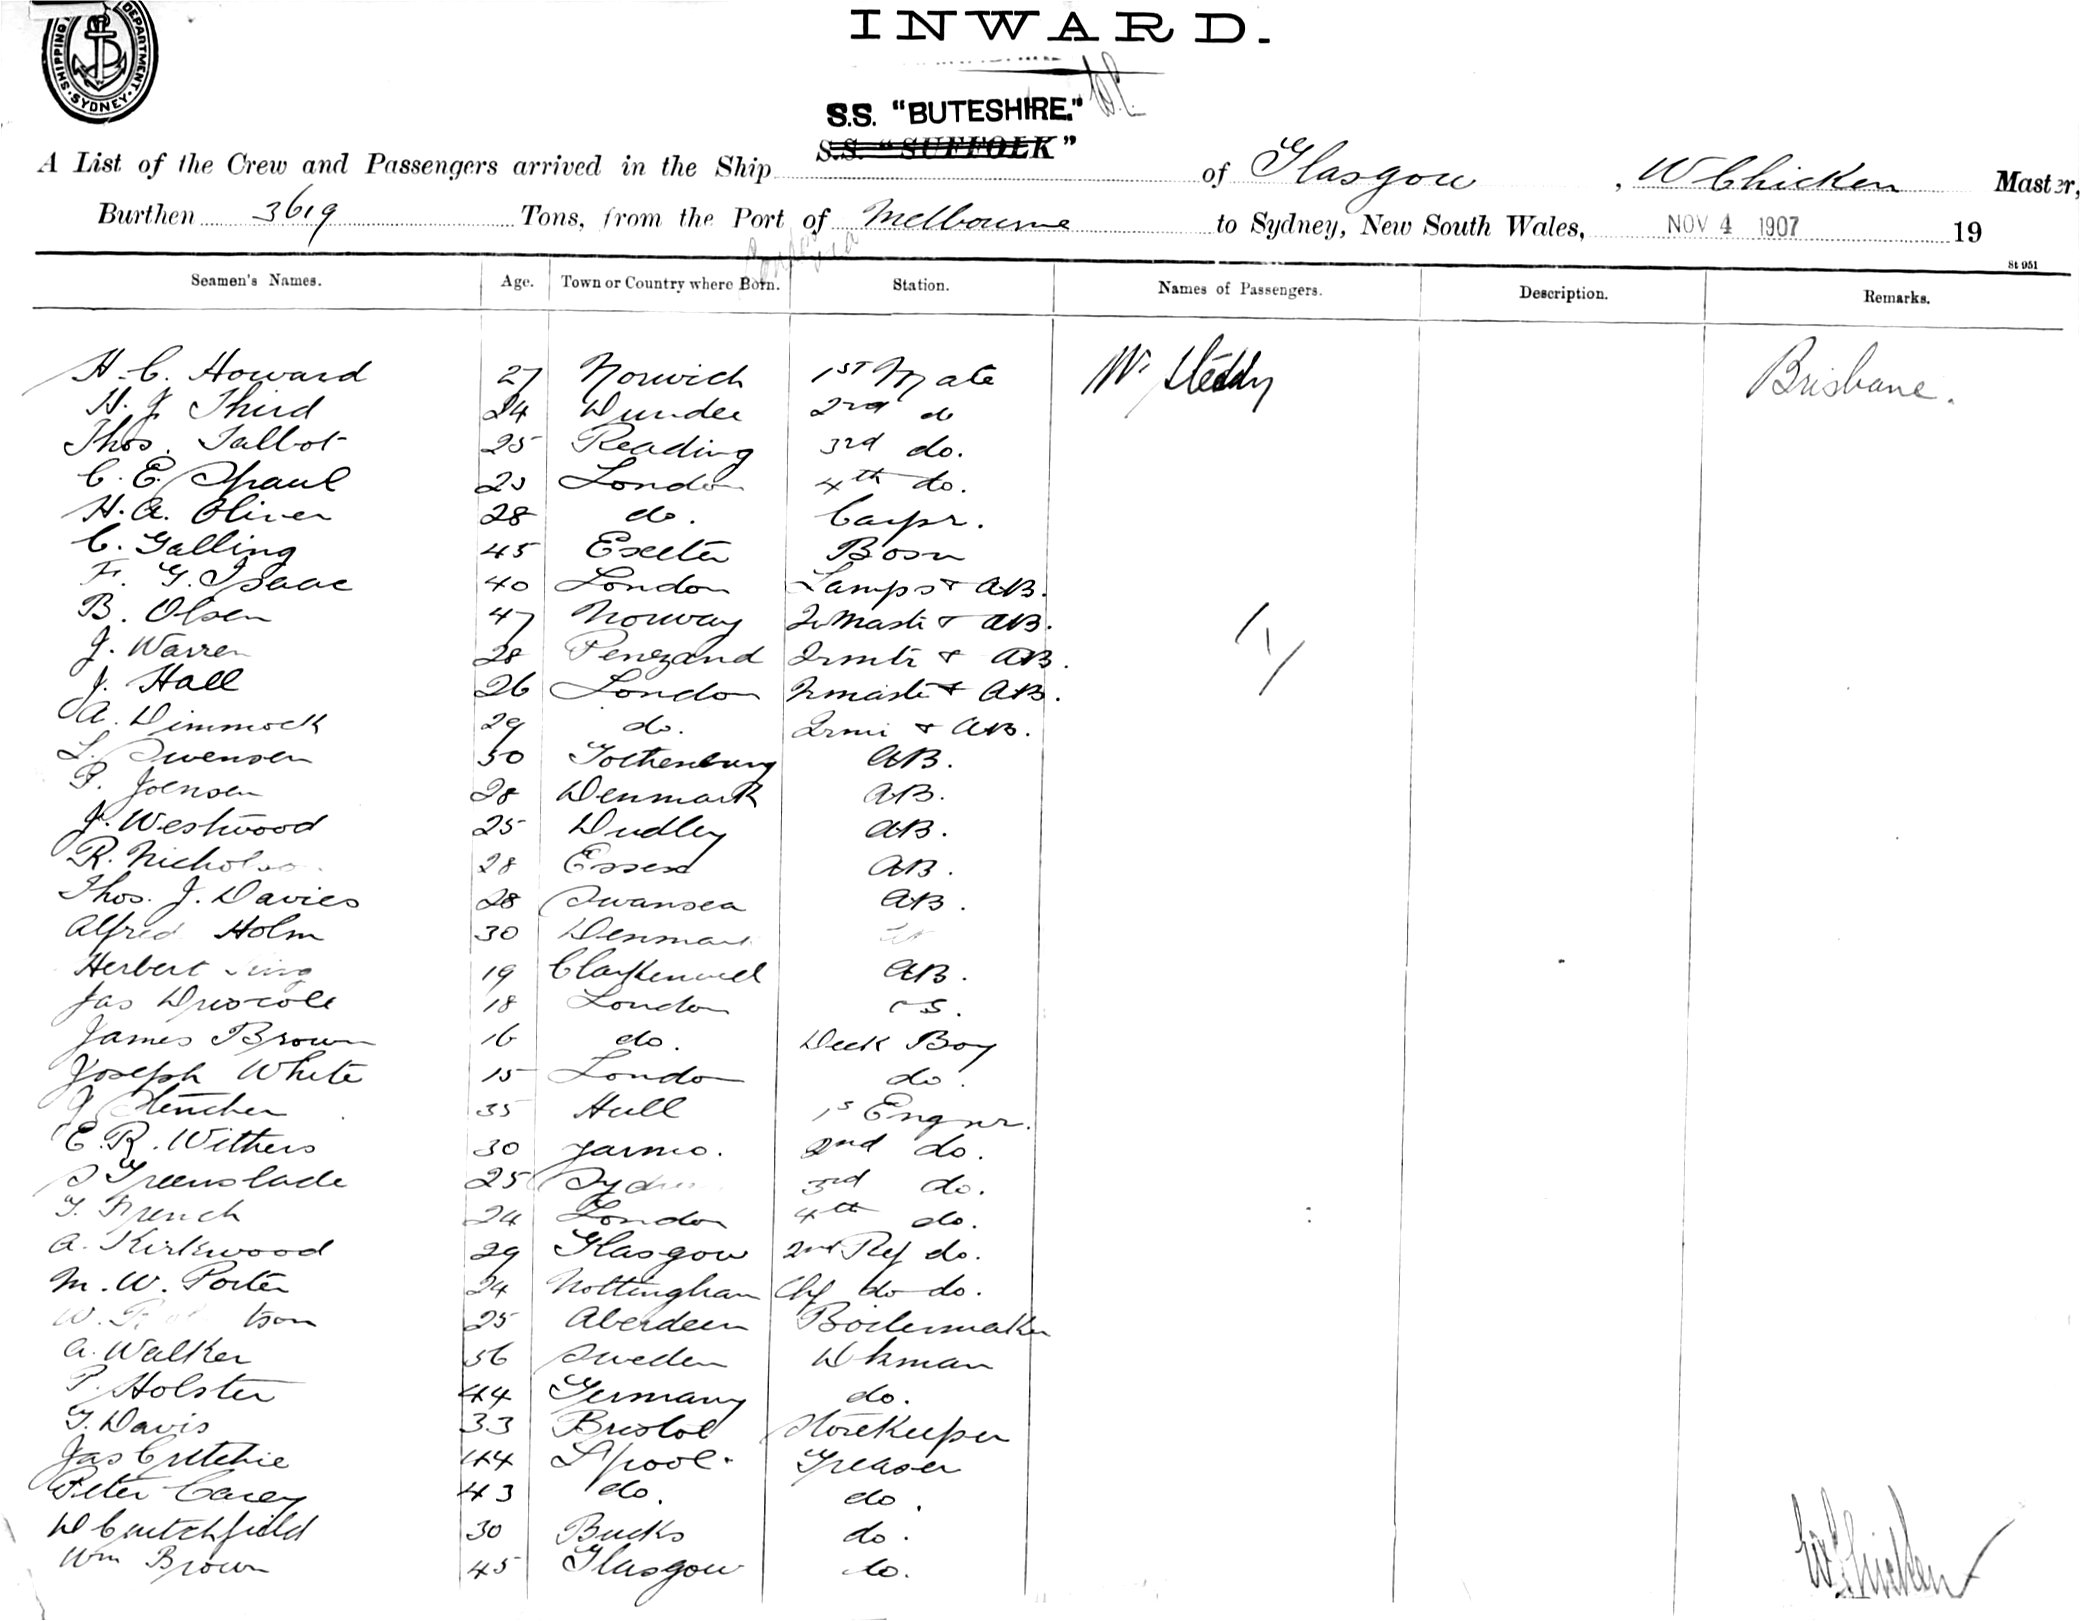 SHIPPING DEPARTMENT SYDNEY
INWARD.
S.S. "BUTESHIRE."
S.S. "SUFFOLK"
A List of the Crew and Passengers arrived in the Ship of Glasgow, W Chicken Master,
Burthen 3619 Tons, from the Port of Melbourne to Sydney, New South Wales, NOV 4 1907 19
St 951
Seamen's Names. Age. Town or Country where Born. Station. Names of Passengers. Description. Remarks.
H. C. Howard 27 Norwich 1st Mate W. Steddy Brisbane.
H. J. Third 24 Dundee 2nd do
Thos. Talbot 25 Reading 3rd do.
C. E. Spaul 23 London 4th do.
H. A. Oliver 28 do. Carpr.
C. Galling 45 Exeter Bosn
F. G. Isaac 40 London Lamps & AB.
B. Olsen 47 Norway AB.
J. Warren 28 Penzand & AB.
J. Hall 26 London & AB.
A. Dimmock 29 do. & AB.
L. Swensen 50 Gothenburg AB.
P. Joensen 28 Denmark AB.
J. Westwood 25 Dudley AB.
R. Nichols 28 Essex AB.
Thos. J. Davies 28 Swansea AB.
Alfred Holm 30 Denmark
Herbert King 19 Clarkenwell AB.
Jas Driscoll 18 London OS.
James Brown 16 do. Deck Boy
Joseph White 15 London do.
J 35 Hull 1s Engnr.
E. R. Withers 30 Yarmo. 2nd do.
S Greenslade 25 Sydney 3rd do.
T. French 24 London 4th do.
A. Kirkwood 29 Glasgow 2nd Ref do.
M. W. Porter 24 Nottingham Chf do do.
W. 25 Aberdeen Boilermaker
A. Walker 56 Sweden Dkman
P. Holster 44 Germany do.
T. Davis 33 Bristol Storekeeper
Jas Critchie 44 L'pool. Greaser
Peter Carey 43 do. do.
D Crutchfield 30 Bucks do.
Wm Brown 45 Glasgow do.
W Chicken